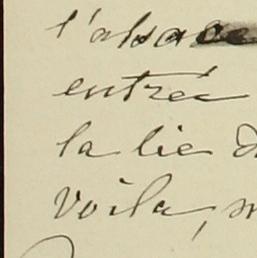 l'alsace
entrée
la lie
voila,